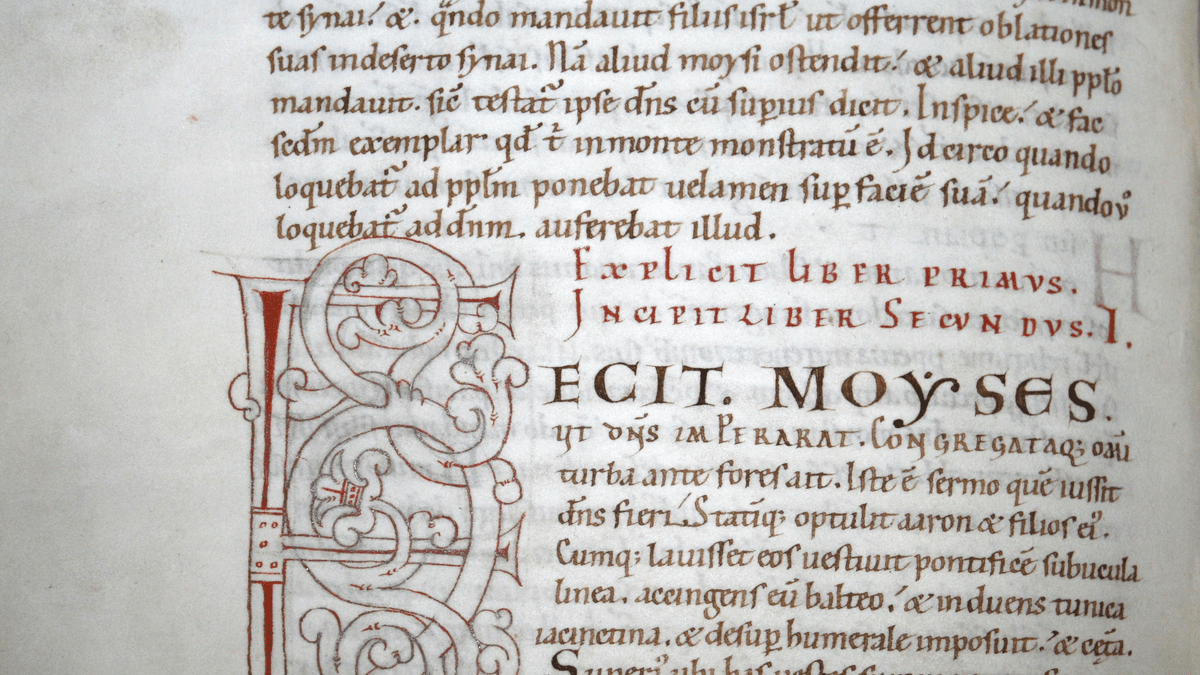 te synai. &. qn̄do mandauit filiis isrł ut offerrent oblationes
suas indeserto synai. Nā aliud moysi ostendit. & aliud illi ppło
mandauit. sic̄ testat᷑ ipse dn̄s cū sup̄ius dicit. Inspice. & fac
scd̄m exemplar. qd̄ t̄ inmonte monstratū ē. Idcirco quando
loquebat᷑ ad ppłm ponebat uelamen sup̄ faciē suā. quando u͛
loquebat᷑ ad dn̄m. auferebat illud.
EXPLICIT LIBER PRIMVS.
INCIPIT LIBER SECVNDVS. I.
FECIT. MOYSES.
VT DN̄S IMPERARAT. CONGREGATAQ; om̄i
turba ante fores ait. Iste ē sermo quē iussit
dn̄s fieri. Statīq; optulit aaron & filios ei᾽.
Cumq; lauisset eos uestiuit pontificē subucula
linea. accingens eū balteo. & induens tunica
iacinctina. & desup̄ humerale imposuit. & cęta.